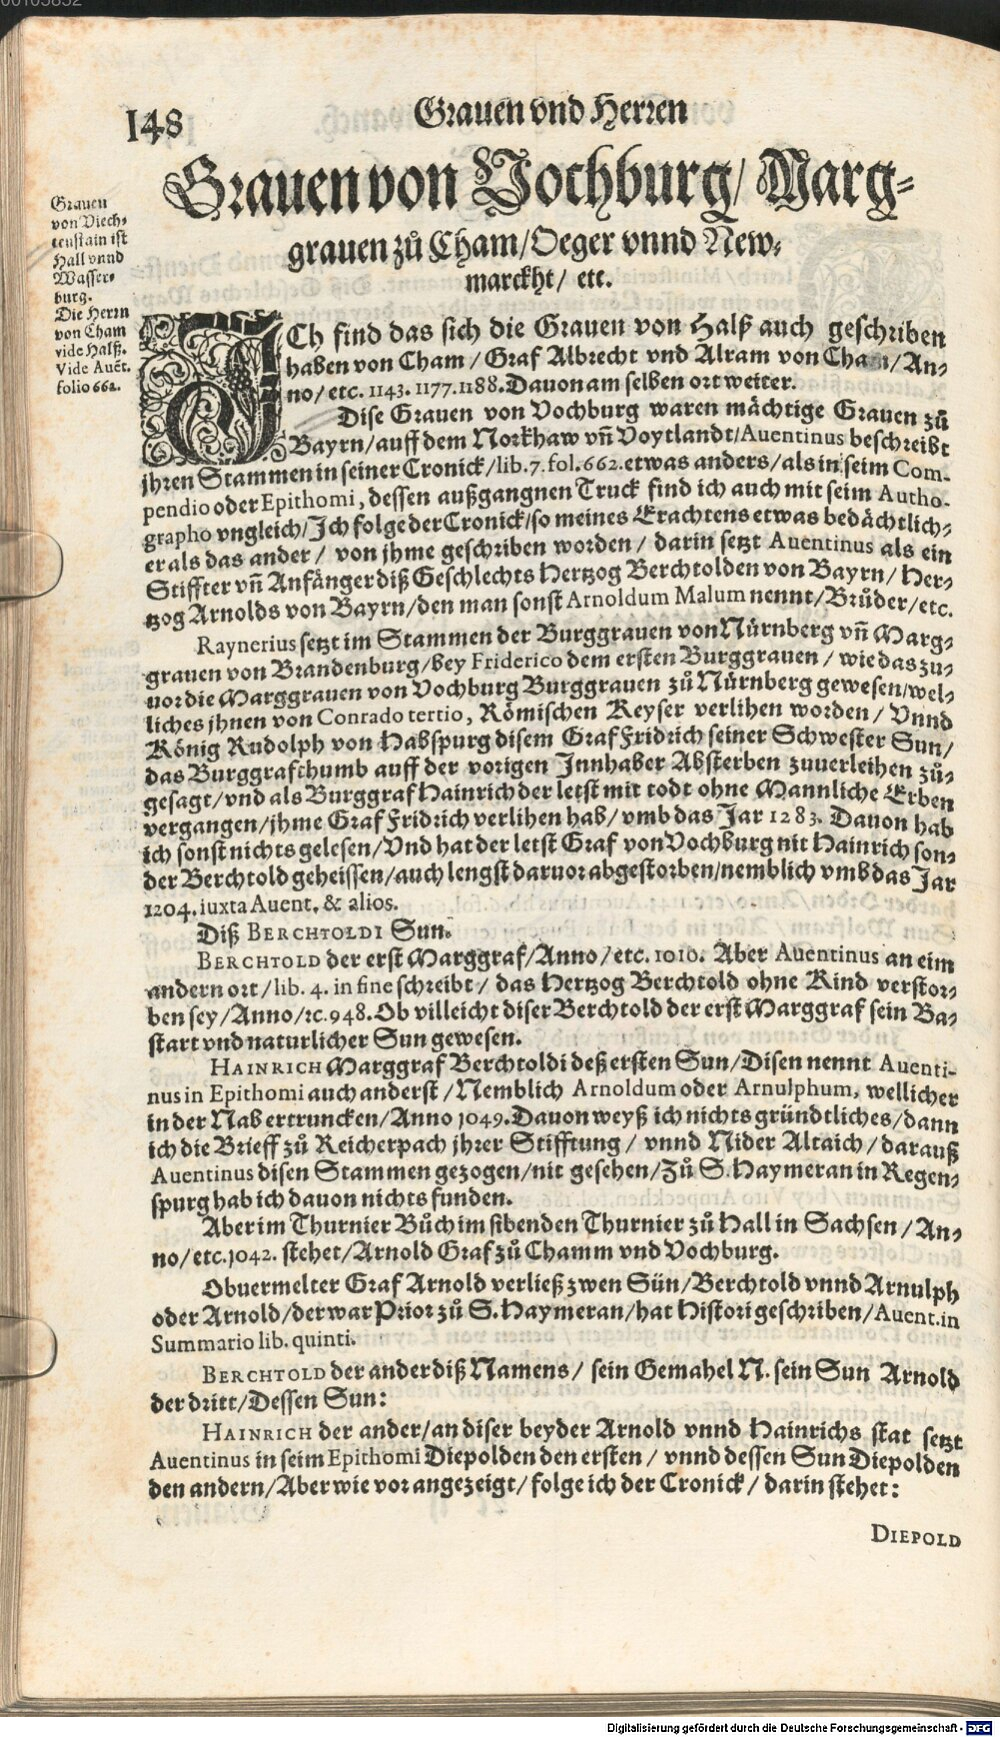 148
Grauen vnd Herren
Grauen von Vochburg/ Marg-
grauen zů Cham/Oeger vnnd New-
marckht/ etc.
Grauen
von Viech-
tenstain ist
Hall vnnd
Wasser-
burg.
Die Herrn
von Cham
vide Halß.
Vide Auēt.
folio 662.
ICh find das sich die Grauen von Halß auch geschriben
haben von Cham/ Graf Albrecht vnd Alram von Cham/An-
no/ etc. 1143. 1177. 1188. Dauon am selben ort weiter.
Dise Grauen von Vochburg waren mächtige Grauen zů
Bayrn/auff dem Norkhaw vñ Voytlandt/Auentinus beschreibt
jhren Stammen in seiner Cronick/lib. 7. fol. 662. etwas anders/als in seim Com-
pendio oder Epithomi, dessen außgangnen Truck find ich auch mit seim Autho-
grapho vngleich/Ich folge der Cronick/so meines Erachtens etwas bedächtlich-
er als das ander/ von jhme geschriben worden/ darin setzt Auentinus als ein
Stiffter vñ Anfänger diß Geschlechts Hertzog Berchtolden von Bayrn/ Her-
tzog Arnolds von Bayrn/den man sonst Arnoldum Malum nennt/Brůder/etc.
Raynerius setzt im Stammen der Burggrauen von Nürnberg vñ Marg-
grauen von Brandenburg/bey Friderico dem ersten Burggrauen/ wie das zu-
uor die Marggrauen von Vochburg Burggrauen zů Nürnberg gewesen/wel-
liches jhnen von Conrado tertio, Römischen Keyser verlihen worden/ Vnnd
König Rudolph von Habspurg disem Graf Fridrich seiner Schwester Sun/
das Burggrafthumb auff der vorigen Innhaber Absterben zuuerleihen zů-
gesagt/vnd als Burggraf Hainrich der letst mit todt ohne Mannliche Erben
vergangen/jhme Graf Fridrich verlihen hab/ vmb das Jar 1283. Dauon hab
ich sonst nichts gelesen/Vnd hat der letst Graf von Vochburg nit Hainrich son-
der Berchtold geheissen/auch lengst daruor abgestorben/nemblich vmb das Jar
1204. iuxta Auent. & alios.
Diß BERCHTOLDI Sun.
BERCHTOLD der erst Marggraf/Anno/etc. 1010. Aber Auentinus an eim
andern ort/lib. 4. in fine schreibt/ das Hertzog Berchtold ohne Kind verstor-
ben sey/Anno/ꝛc. 948. Ob villeicht diser Berchtold der erst Marggraf sein Ba-
start vnd naturlicher Sun gewesen.
HAINRICH Marggraf Berchtoldi deß ersten Sun/Disen nennt Auenti-
nus in Epithomi auch anderst/Nemblich Arnoldum oder Arnulphum, wellicher
in der Nab ertruncken/Anno 1049. Dauon weyß ich nichts gründtliches/dann
ich die Brieff zů Reicherpach jhrer Stifftung/ vnnd Nider Altaich/darauß
Auentinus disen Stammen gezogen/nit gesehen/Zů S. Haymeran in Regen-
spurg hab ich dauon nichts funden.
Aber im Thurnier Bůch im sibenden Thurnier zů Hall in Sachsen/An-
no/etc. 1042. stehet/Arnold Graf zů Chamm vnd Vochburg.
Obuermelter Graf Arnold verließ zwen Sün/Berchtold vnnd Arnulph
oder Arnold/der war Prior zů S. Haymeran/hat Histori geschriben/Auent. in
Summario lib. quinti.
BERCHTOLD der ander diß Namens/ sein Gemahel N. sein Sun Arnold
der dritt/Dessen Sun:
HAINRICH der ander/an diser beyder Arnold vnnd Hainrichs stat setzt
Auentinus in seim Epithomi Diepolden den ersten/ vnnd dessen Sun Diepolden
den andern/Aber wie vor angezeigt/folge ich der Cronick/ darin stehet:
DIEPOLD
Digitalisierung gefördert durch die Deutsche Forschungsgemeinschaft - DFG